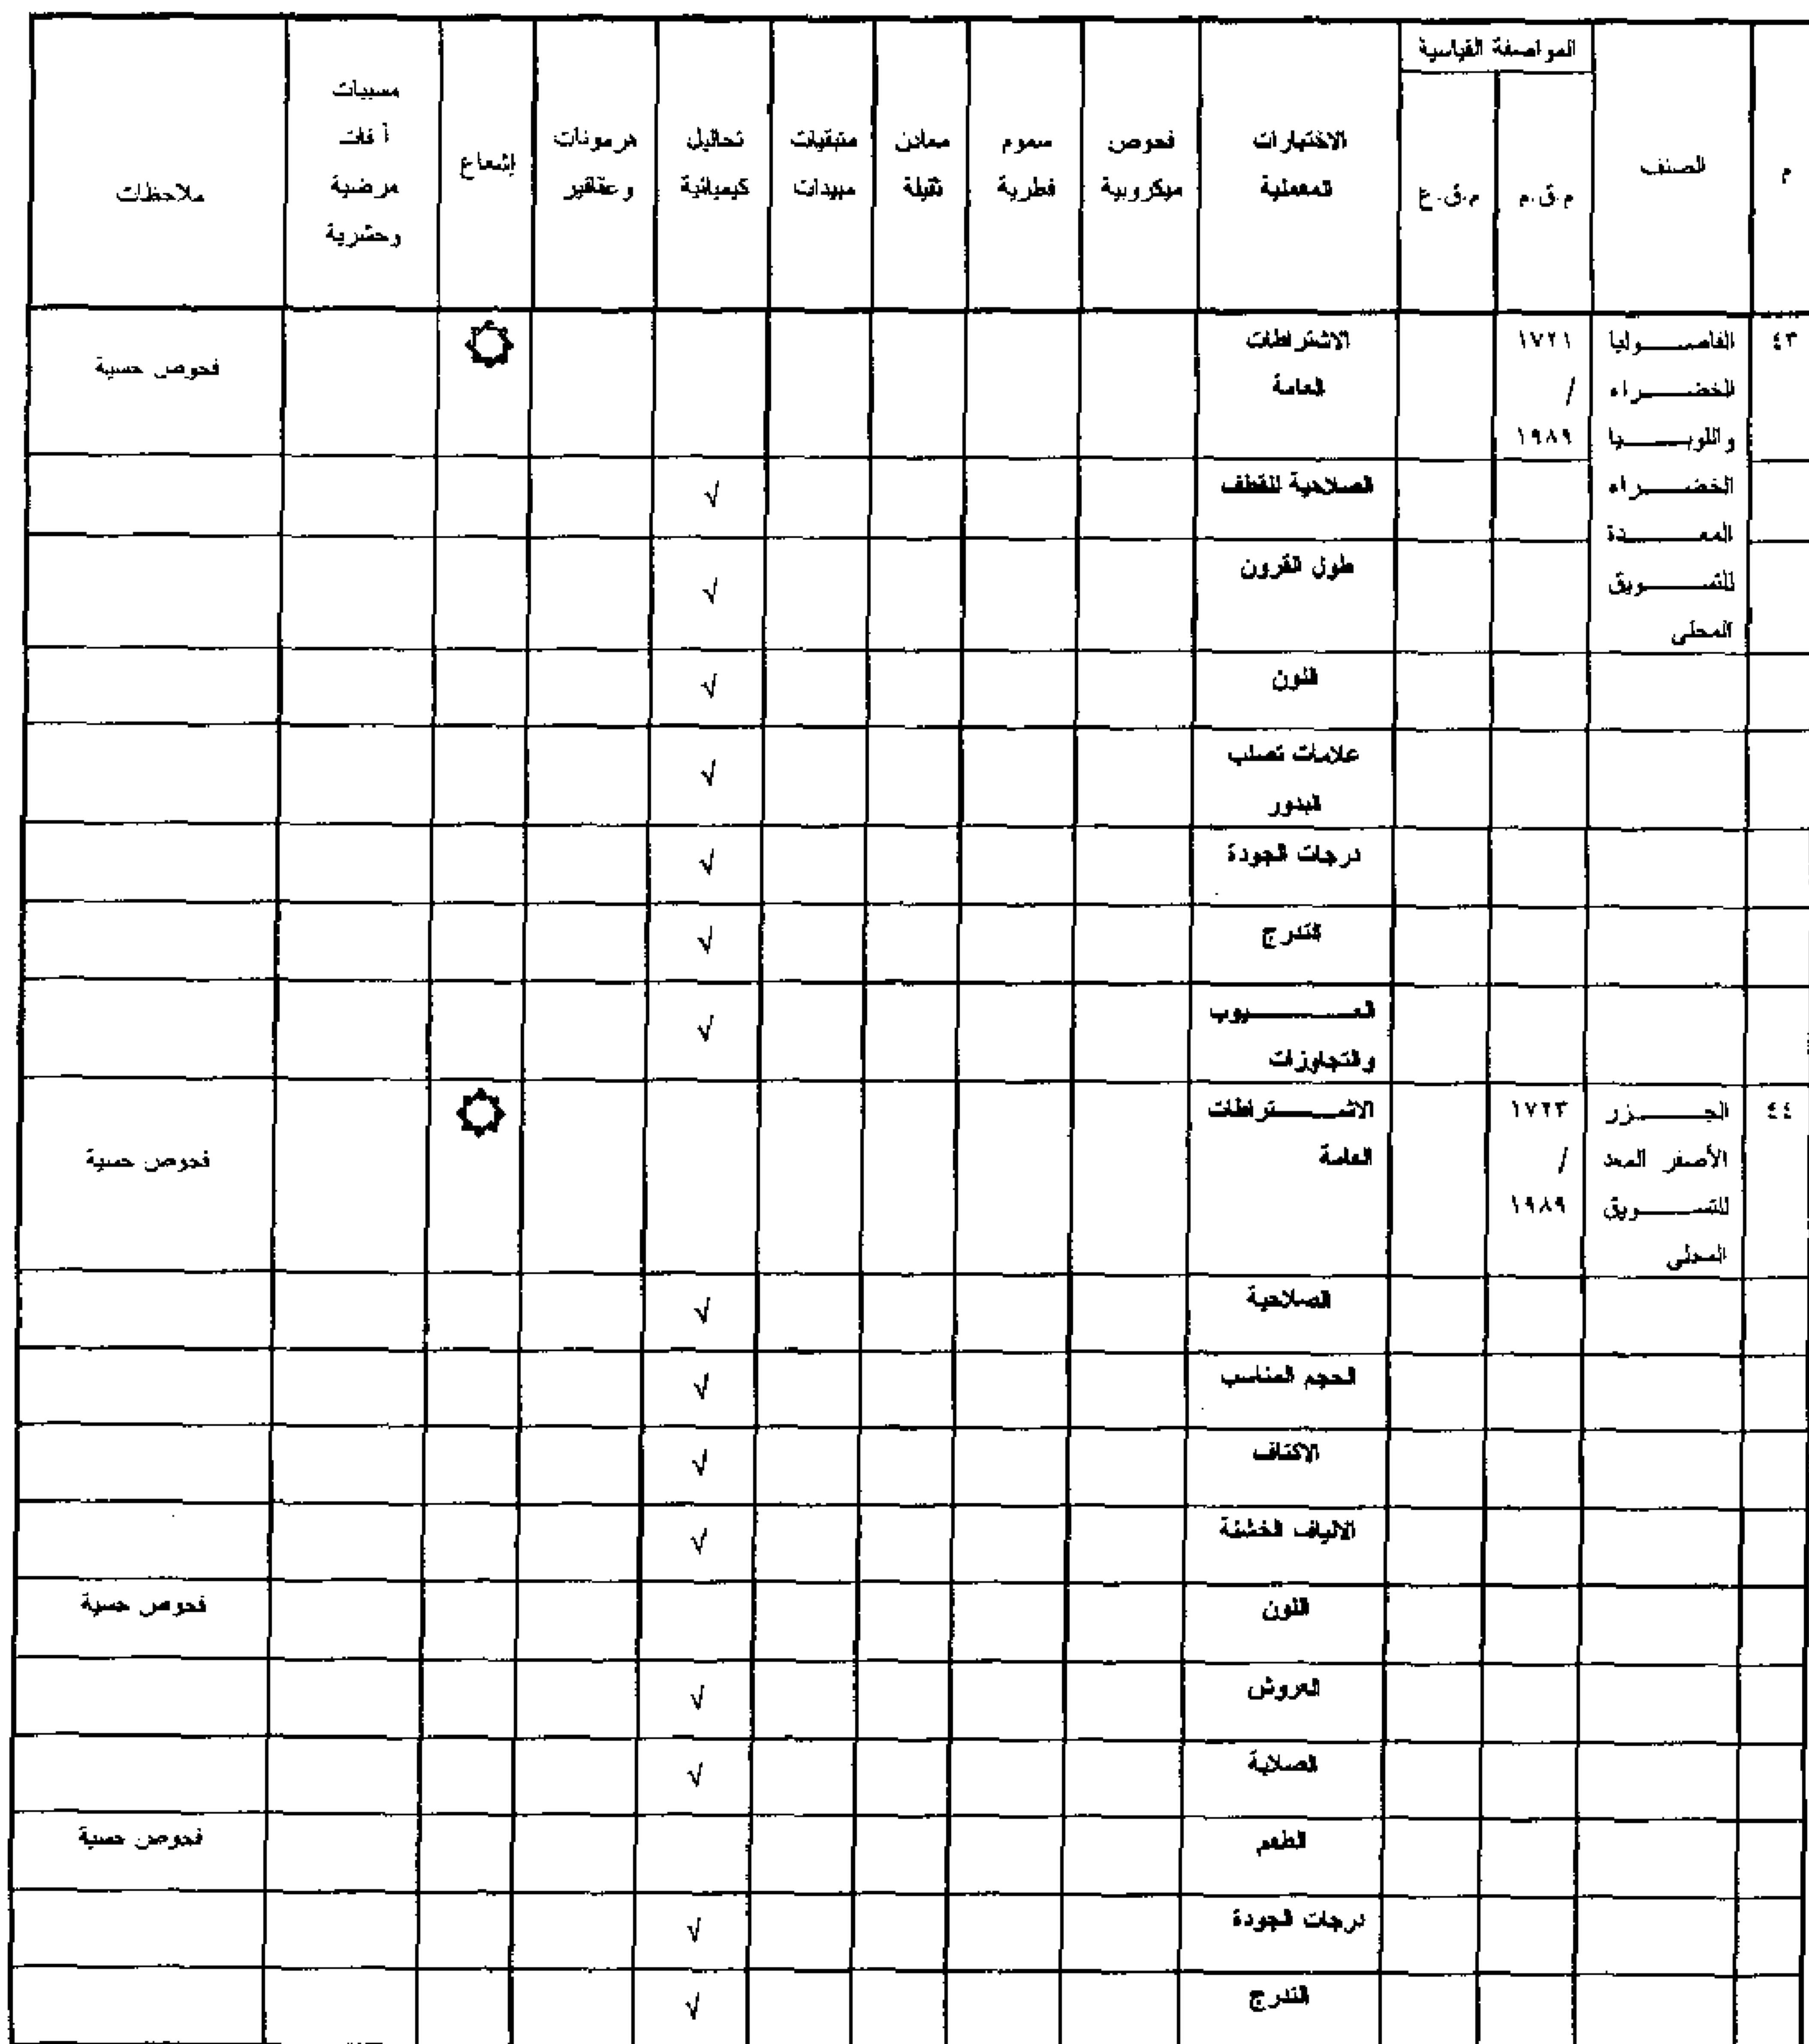 م
الصنف
المواصفة القياسية
م.ق.م
م.ق.ع
الاختبارات
المعملية
فحوص
ميكروبية
سموم
فطرية
معادن
ثقيلة
متبقيات
مبيدات
تحاليل
كيميائية
هرمونات
وعقاقير
إشعاع
مسببات
آفات
مرضية
وحشرية
ملاحظات
٤٣
الفاصوليا
الخضراء
واللوبيا
الخضراء
المعدة
للتسويق
المحلى
١٧٢١
/
١٩٨٩
الاشتراطات
العامة
فحوص حسية
الصلاحية للقطف
√
طول القرون
√
اللون
√
علامات تصلب
البذور
√
درجات الجودة
√
التدرج
√
العيوب
والتجاوزات
√
٤٤
الجزر
الأصفر المعد
للتسويق
المحلى
١٧٢٣
/
١٩٨٩
الاشتراطات
العامة
فحوص حسية
الصلاحية
√
الحجم المناسب
√
الاكتاف
√
الالياف الخشنة
√
اللون
فحوص حسية
العروش
√
الصلابة
√
الطعم
فحوص حسية
درجات الجودة
√
التدرج
√